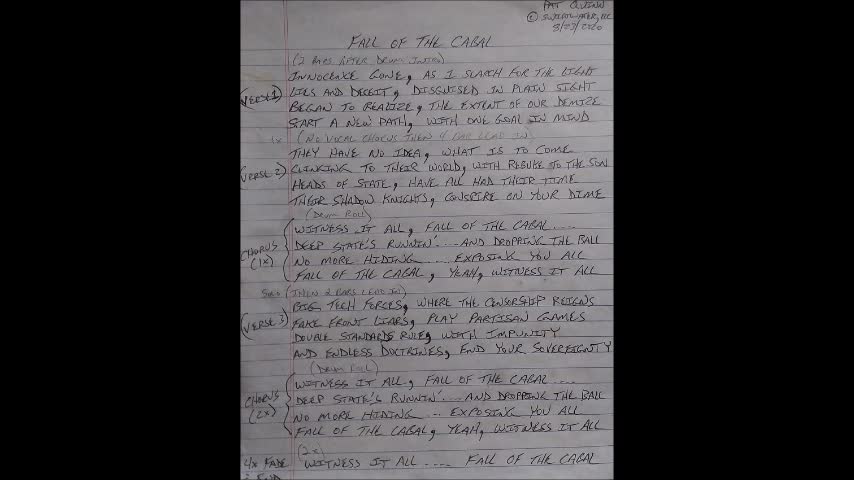 PAT QUINN
© SWEETWATER, LLC
8/23/2020
FALL OF THE CABAL
(2 BARS AFTER DRUM INTRO)
(VERSE 1)
INNOCENCE GONE, AS I SEARCH FOR THE LIGHT
LIES AND DECEIT, DISGUISED IN PLAIN SIGHT
BEGAN TO REALIZE, THE EXTENT OF OUR DEMIZE
START A NEW PATH, WITH ONE GOAL IN MIND
1x (NO VOCAL CHORUS THEN 4 BAR LEAD IN)
(VERSE 2)
THEY HAVE NO IDEA, WHAT IS TO COME
CLINKING TO THEIR WORLD, WITH REBUKE TO THE SON
HEADS OF STATE, HAVE ALL HAD THEIR TIME
THEIR SHADOW KNIGHTS, CONSPIRE ON YOUR DIME
(DRUM ROLL)
CHORUS (1x)
WITNESS IT ALL, FALL OF THE CABAL....
DEEP STATE'S RUNNIN'....AND DROPPING THE BALL
NO MORE HIDING.... EXPOSING YOU ALL
FALL OF THE CABAL, YEAH, WITNESS IT ALL
SOLO (THEN 2 BARS LEAD IN)
(VERSE 3)
BIG TECH FORCES, WHERE THE CENSORSHIP REIGNS
FAKE FRONT LIARS, PLAY PARTISAN GAMES
DOUBLE STANDARDS RULE, WITH IMPUNITY
AND ENDLESS DOCTRINES, END YOUR SOVEREIGNTY
(DRUM ROLL)
CHORUS (2x)
WITNESS IT ALL, FALL OF THE CABAL....
DEEP STATE'S RUNNIN'....AND DROPPING THE BALL
NO MORE HIDING.... EXPOSING YOU ALL
FALL OF THE CABAL, YEAH, WITNESS IT ALL
(2x)
4x FADE WITNESS IT ALL.... FALL OF THE CABAL
& END